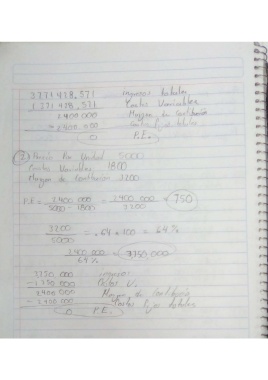 3 771 428,571 ingresos totales
1 371 428,571 Costos Variables
2 400 000 Margen de Contribución
- 2 400 000 Costos Fijos totales
0 P.E.
2) Precio Por Unidad 5000
Costos Variables 1800
Margen de Contribución 3200
P.E = 2 400 000 / 5000 - 1800 = 2 400 000 / 3200 = 750
3200 / 5000 = .64 x 100 = 64%
2 400 000 / 64% = 3 750 000
3 750 000 ingresos
- 1 350 000 Costos V.
2 400 000 Margen de Contribución
- 2 400 000 Costos Fijos totales
0 P.E.